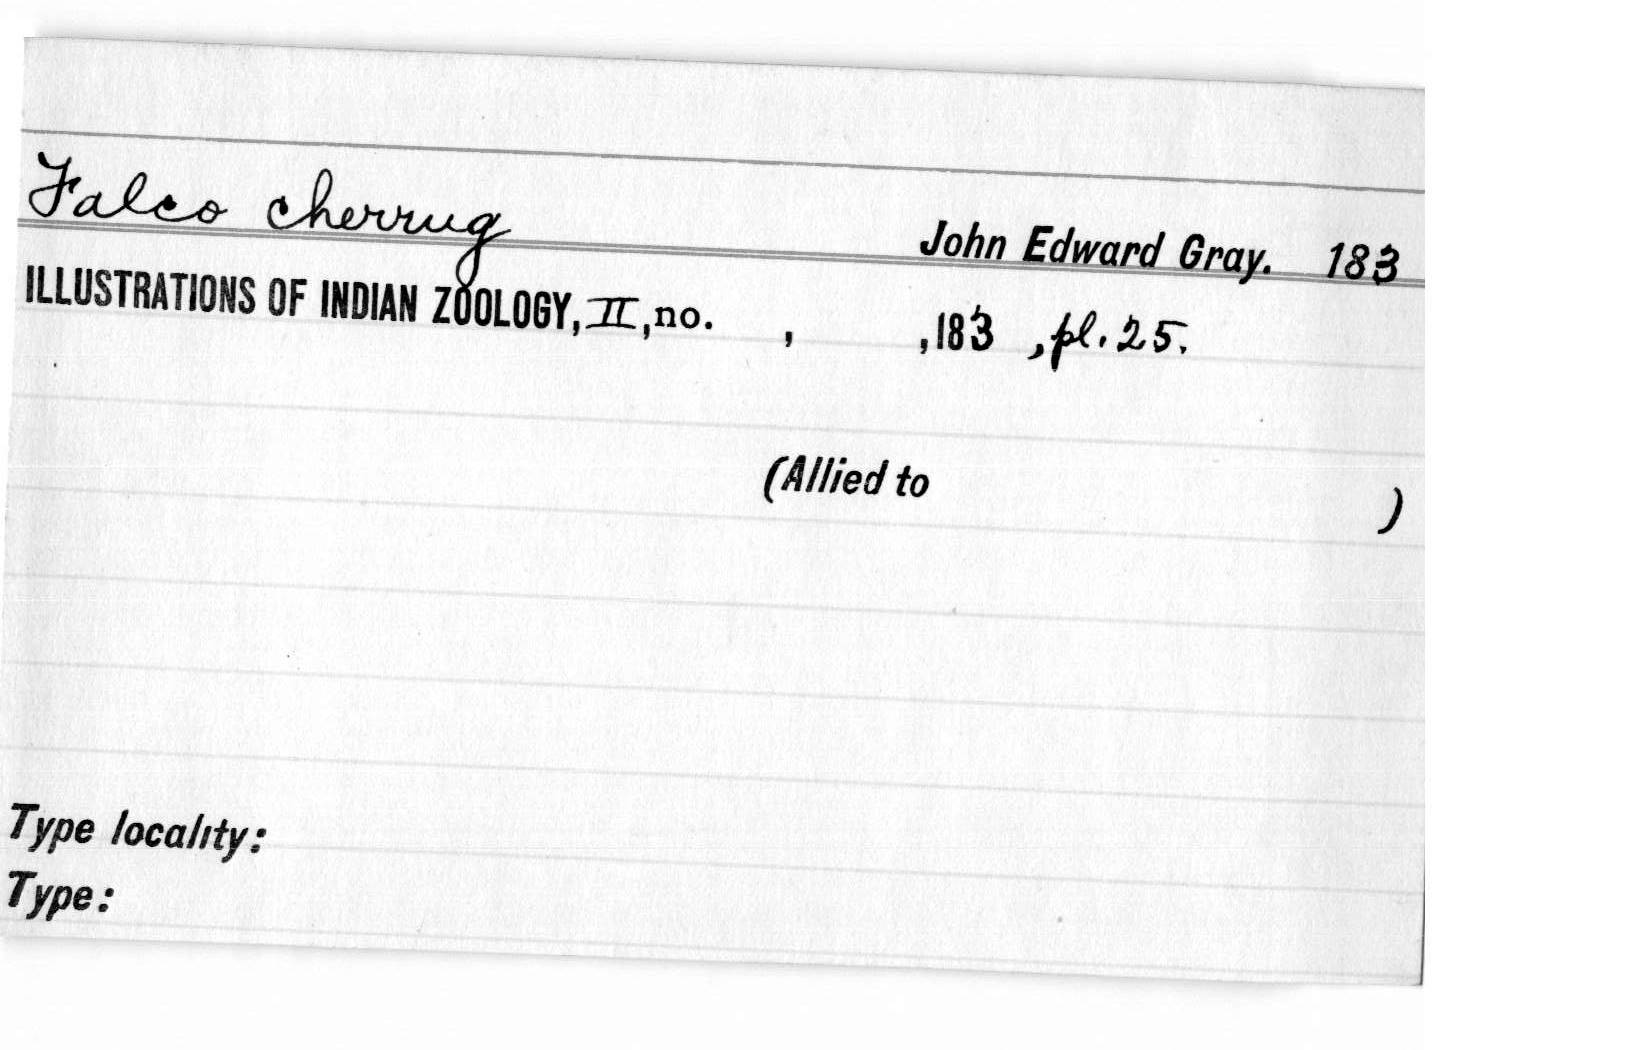 Falco cherrug
John Edward Gray. 183
ILLUSTRATIONS OF INDIAN ZOOLOGY, II, no. , , 183 , pl. 25.
(Allied to )
Type locality:
Type: